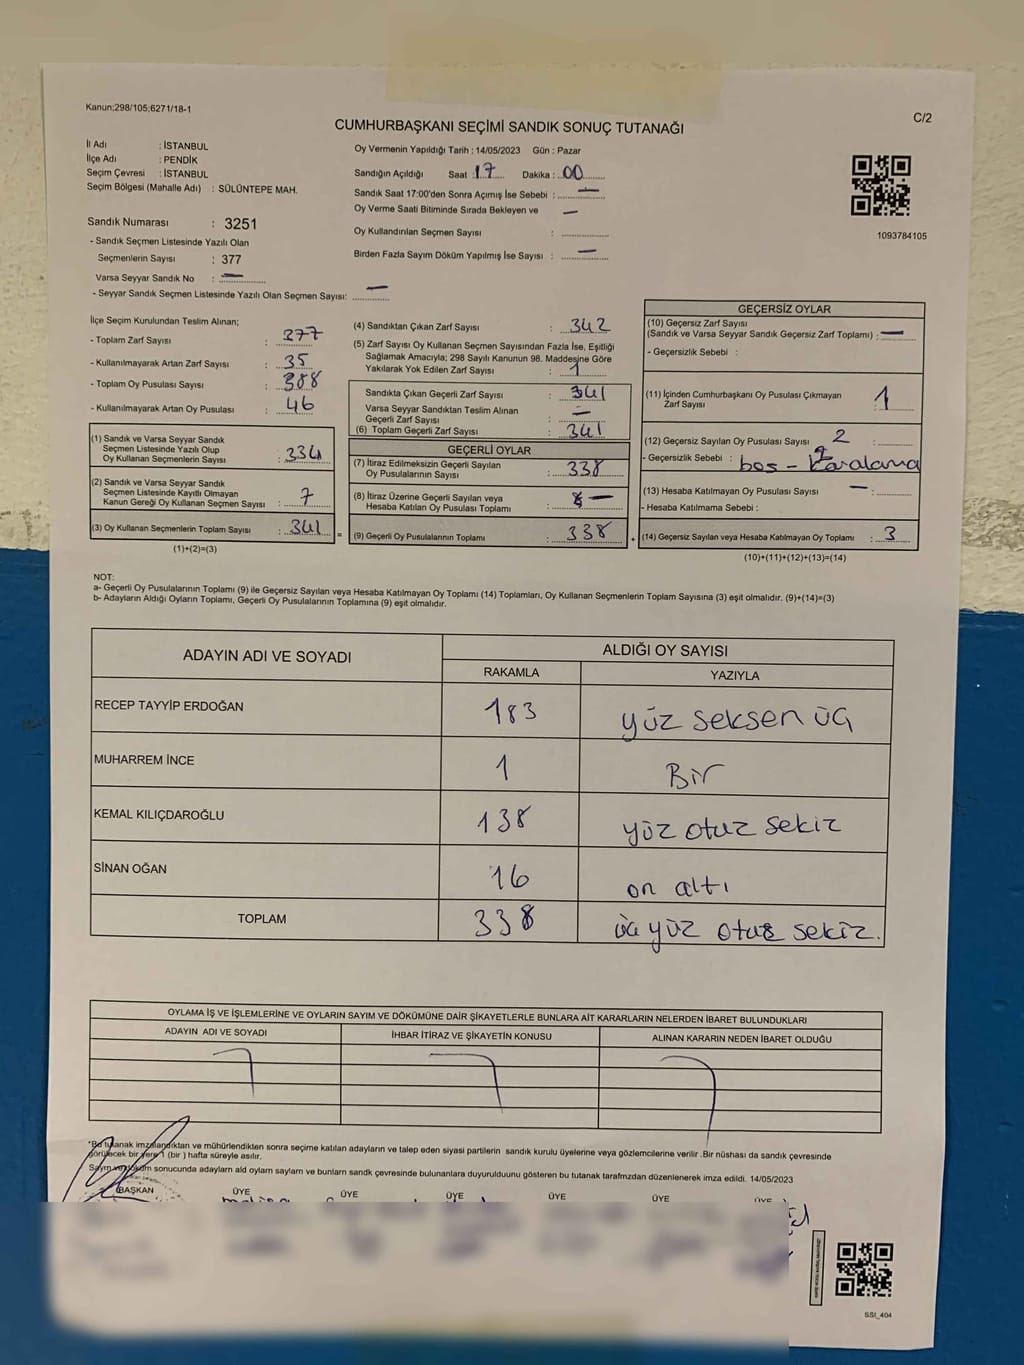 Kanun;298/105,6271/18-1
C/2
CUMHURBAŞKANI SEÇİMİ SANDIK SONUÇ TUTANAĞI
İl Adı : İSTANBUL
İlçe Adı : PENDİK
Seçim Çevresi : İSTANBUL
Seçim Bölgesi (Mahalle Adı) : SÜLÜNTEPE MAH.
Sandık Numarası : 3251
- Sandık Seçmen Listesinde Yazılı Olan
Seçmenlerin Sayısı : 377
Varsa Seyyar Sandık No : —
- Seyyar Sandık Seçmen Listesinde Yazılı Olan Seçmen Sayısı: —
Oy Vermenin Yapıldığı Tarih : 14/05/2023 Gün : Pazar
Sandığın Açıldığı Saat : 17 Dakika : 00
Sandık Saat 17:00'den Sonra Açımış İse Sebebi : —
Oy Verme Saati Bitiminde Sırada Bekleyen ve —
Oy Kullandırılan Seçmen Sayısı :
Birden Fazla Sayım Döküm Yapılmış İse Sayısı : —
1093784105
İlçe Seçim Kurulundan Teslim Alınan;
- Toplam Zarf Sayısı : 377
- Kullanılmayarak Artan Zarf Sayısı : 35
- Toplam Oy Pusulası Sayısı : 388
- Kullanılmayarak Artan Oy Pusulası : 46
(1) Sandık ve Varsa Seyyar Sandık
Seçmen Listesinde Yazılı Olup
Oy Kullanan Seçmenlerin Sayısı : 334
(2) Sandık ve Varsa Seyyar Sandık
Seçmen Listesinde Kayıtlı Olmayan
Kanun Gereği Oy Kullanan Seçmen Sayısı : 7
(3) Oy Kullanan Seçmenlerin Toplam Sayısı : 341
(1)+(2)=(3)
=
(4) Sandıktan Çıkan Zarf Sayısı : 342
(5) Zarf Sayısı Oy Kullanan Seçmen Sayısından Fazla İse, Eşitliği
Sağlamak Amacıyla; 298 Sayılı Kanunun 98. Maddesine Göre
Yakılarak Yok Edilen Zarf Sayısı : 1
Sandıkta Çıkan Geçerli Zarf Sayısı : 341
Varsa Seyyar Sandıktan Teslim Alınan
Geçerli Zarf Sayısı : —
(6) Toplam Geçerli Zarf Sayısı : 341
GEÇERLİ OYLAR
(7) İtiraz Edilmeksizin Geçerli Sayılan
Oy Pusulalarının Sayısı : 338
(8) İtiraz Üzerine Geçerli Sayılan veya
Hesaba Katılan Oy Pusulası Toplamı : —
(9) Geçerli Oy Pusulalarının Toplamı : 338
+
GEÇERSİZ OYLAR
(10) Geçersiz Zarf Sayısı
(Sandık ve Varsa Seyyar Sandık Geçersiz Zarf Toplamı) : —
- Geçersizlik Sebebi :
(11) İçinden Cumhurbaşkanı Oy Pusulası Çıkmayan
Zarf Sayısı : 1
(12) Geçersiz Sayılan Oy Pusulası Sayısı : 2
- Geçersizlik Sebebi : boş - karalama
(13) Hesaba Katılmayan Oy Pusulası Sayısı — :
- Hesaba Katılmama Sebebi :
(14) Geçersiz Sayılan veya Hesaba Katılmayan Oy Toplamı : 3
(10)+(11)+(12)+(13)=(14)
NOT:
a- Geçerli Oy Pusulalarının Toplamı (9) ile Geçersiz Sayılan veya Hesaba Katılmayan Oy Toplamı (14) Toplamları, Oy Kullanan Seçmenlerin Toplam Sayısına (3) eşit olmalıdır. (9)+(14)=(3)
b- Adayların Aldığı Oyların Toplamı, Geçerli Oy Pusulalarının Toplamına (9) eşit olmalıdır.
ADAYIN ADI VE SOYADI
ALDIĞI OY SAYISI
RAKAMLA YAZIYLA
RECEP TAYYİP ERDOĞAN 183 yüz seksen üç
MUHARREM İNCE 1 Bir
KEMAL KILIÇDAROĞLU 138 yüz otuz sekiz
SİNAN OĞAN 16 on altı
TOPLAM 338 üç yüz otuz sekiz.
OYLAMA İŞ VE İŞLEMLERİNE VE OYLARIN SAYIM VE DÖKÜMÜNE DAİR ŞİKAYETLERLE BUNLARA AİT KARARLARIN NELERDEN İBARET BULUNDUKLARI
ADAYIN ADI VE SOYADI İHBAR İTİRAZ VE ŞİKAYETİN KONUSU ALINAN KARARIN NEDEN İBARET OLDUĞU
*Bu tutanak imzalandıktan ve mühürlendikten sonra seçime katılan adayların ve talep eden siyasi partilerin sandık kurulu üyelerine veya gözlemcilerine verilir .Bir nüshası da sandık çevresinde
görülecek bir yere 1 (bir ) hafta süreyle asılır.
Sayım ve döküm sonucunda adayların ald oyların sayların ve bunların sandk çevresinde bulunanlara duyurulduunu gösteren bu tutanak tarafmzdan düzenlenerek imza edildi. 14/05/2023
BAŞKAN ÜYE ÜYE ÜYE ÜYE ÜYE ÜYE
SSI_404